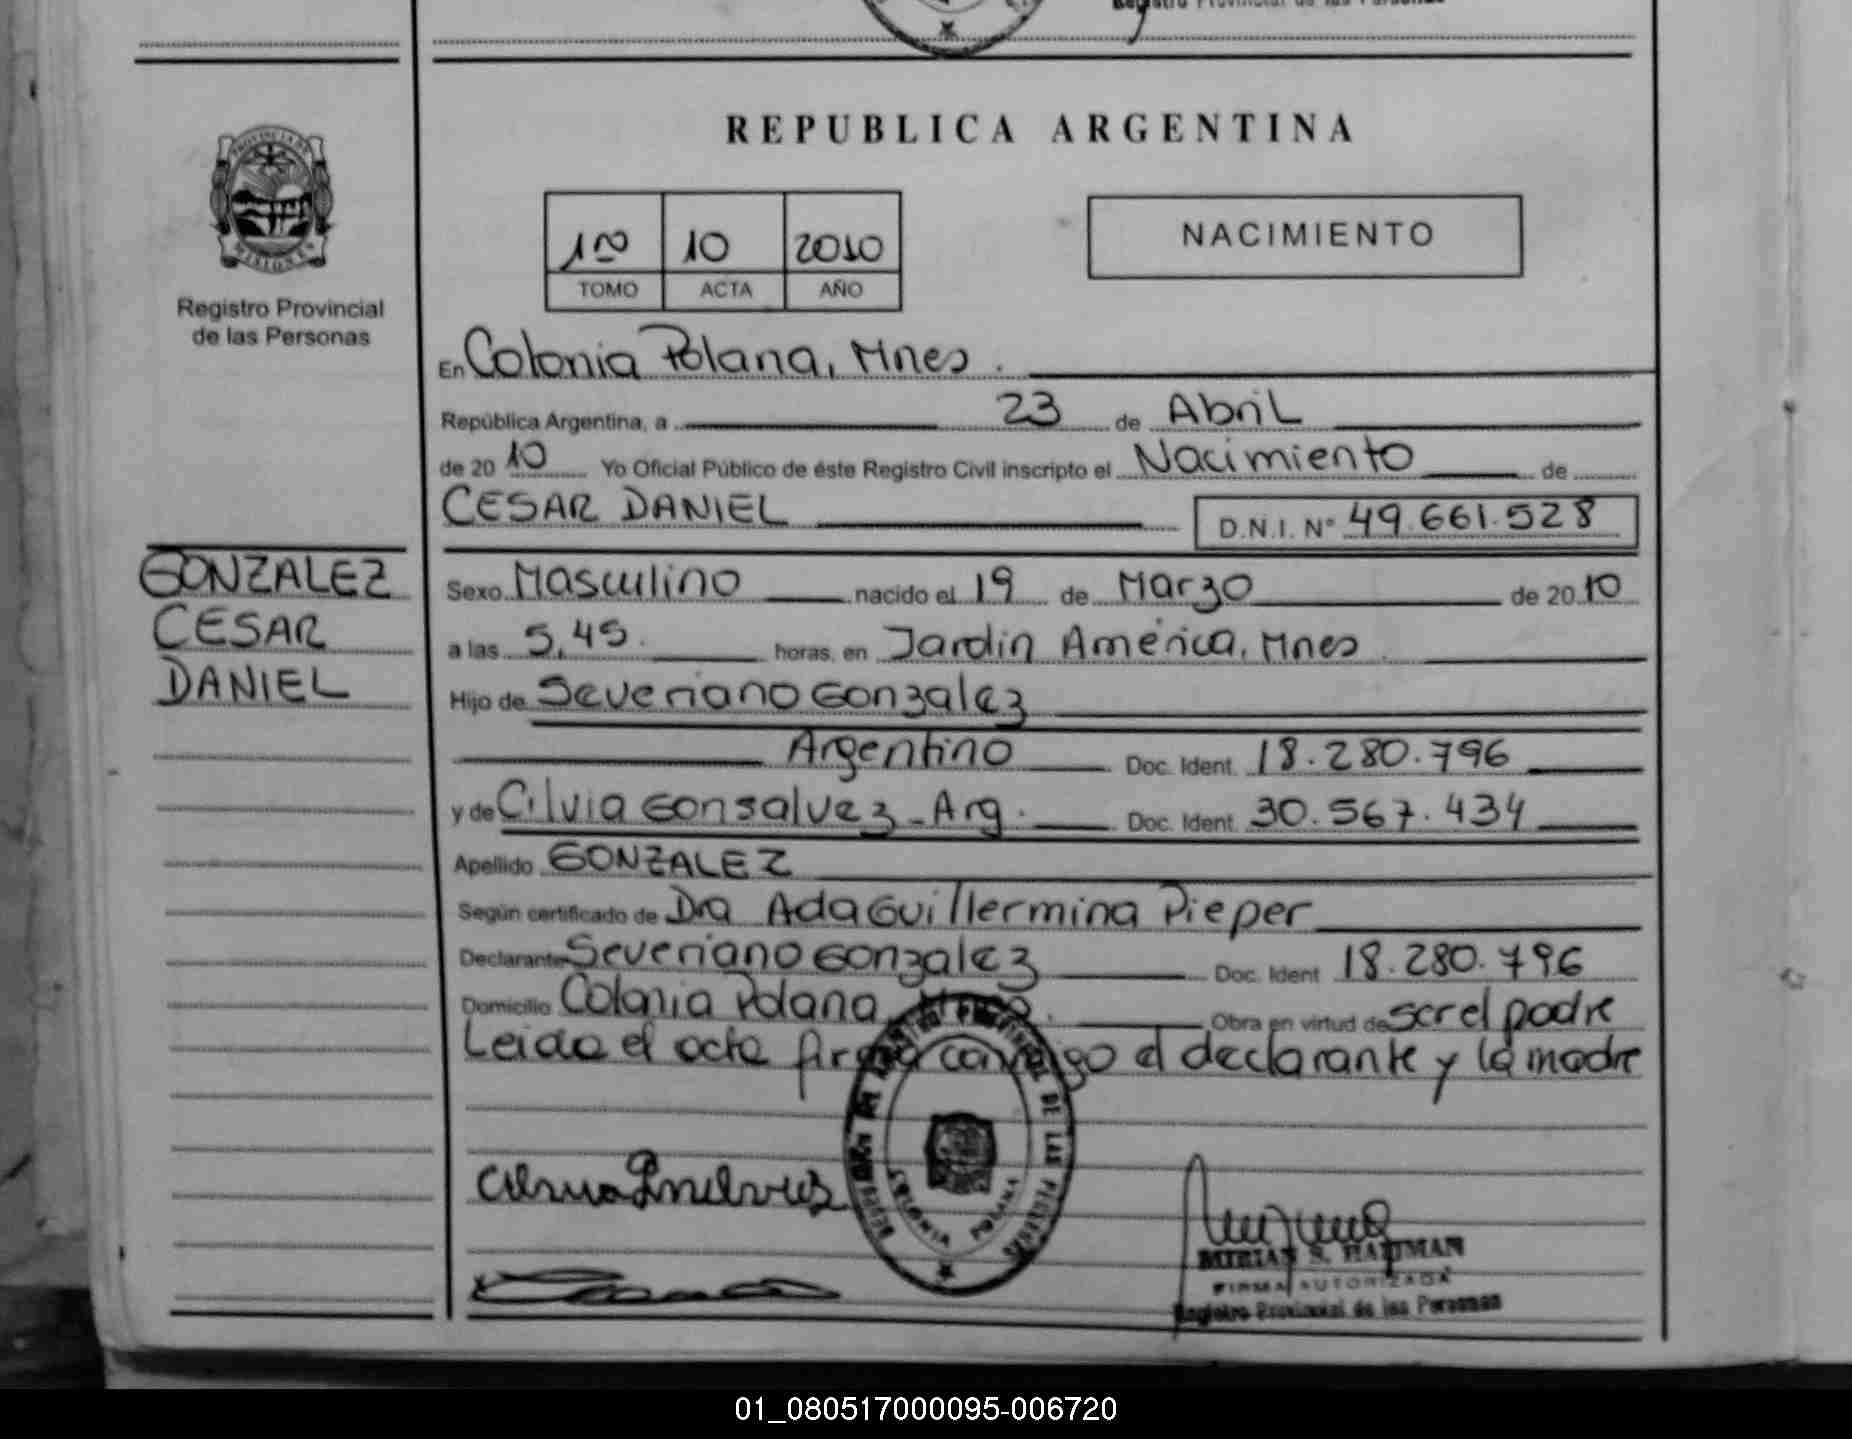 Registro Provincial de las Personas
REPUBLICA ARGENTINA
1ro 10 2010
TOMO ACTA AÑO
NACIMIENTO
PROVINCIA DE
MISIONES
Registro Provincial
de las Personas
En Colonia Polana, Mnes.
República Argentina, a 23 de Abril
de 2010 Yo Oficial Público de éste Registro Civil inscripto el Nacimiento de
CESAR DANIEL D.N.I. Nº 49.661.528
GONZALEZ
CESAR
DANIEL
Sexo Masculino nacido el 19 de Marzo de 2010
a las 5,45. horas, en Jardin América, Mnes.
Hijo de Severiano Gonzalez
Argentino Doc. Ident. 18.280.796
y de Cilvia Gonsalvez - Arg. Doc. Ident. 30.567.434
Apellido GONZALEZ
Según certificado de Dra Ada Guillermina Pieper
Declarante Severiano Gonzalez Doc. Ident 18.280.796
Domicilio Colonia Polana, Mnes. Obra en virtud de ser el padre
Leida el acta firma conmigo el declarante y la madre
COLONIA POLANA
MIRIAN S. HAUMAN
FIRMA AUTORIZADA
Registro Provincial de las Personas
01_080517000095-006720